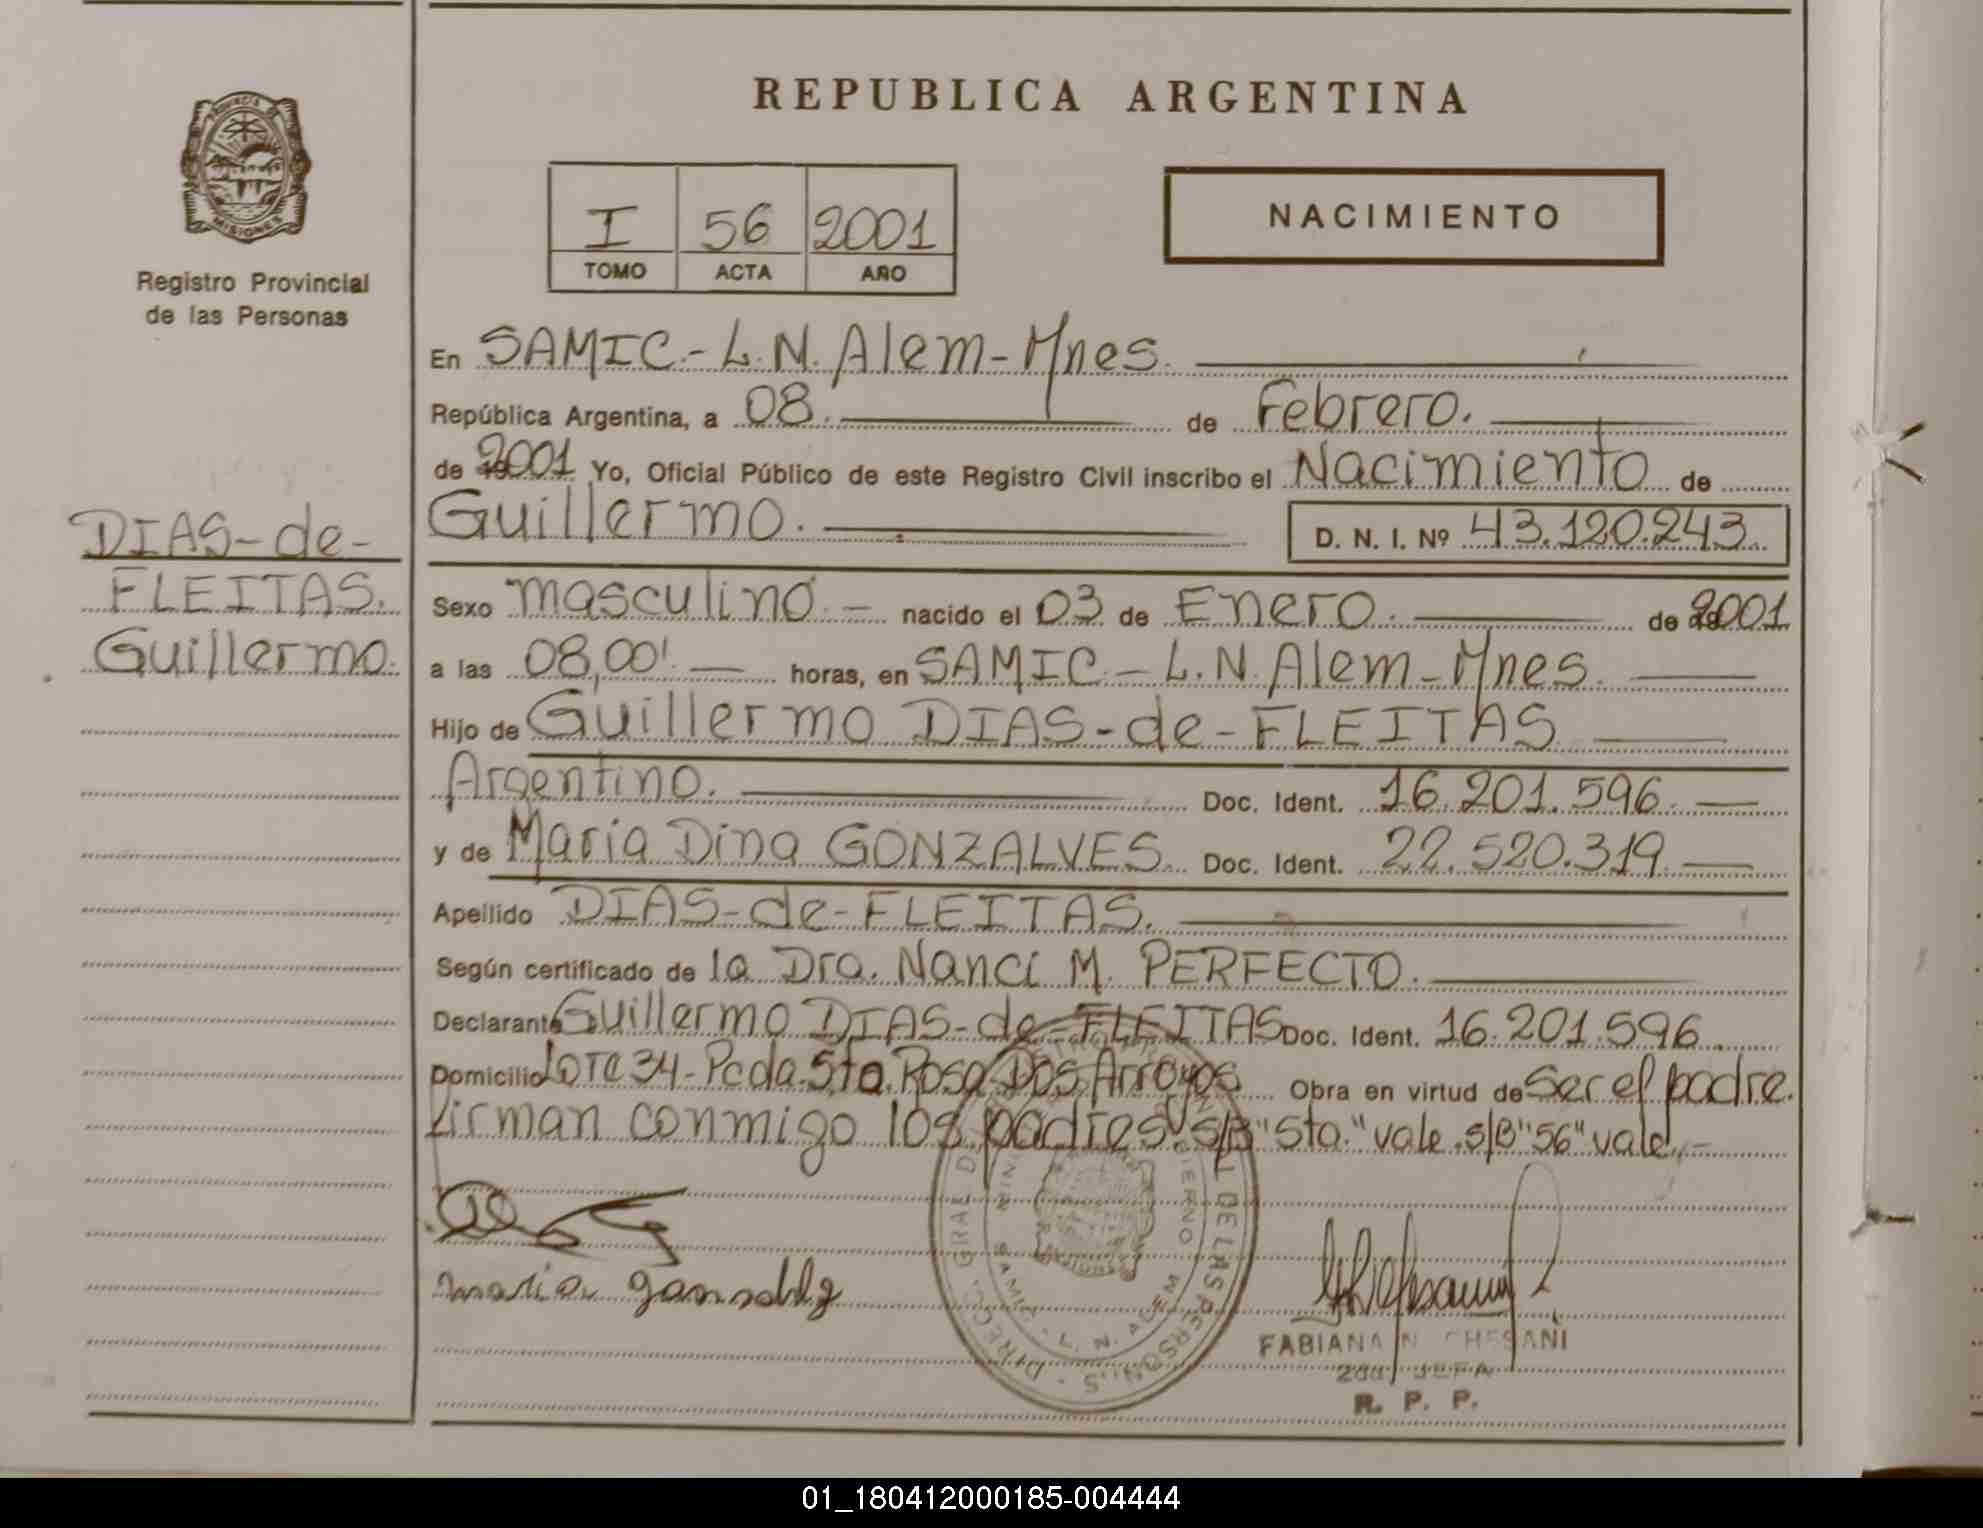 PROVINCIA DE
MISIONES
Registro Provincial
de las Personas
DIAS-de-
FLEITAS.
Guillermo.
REPUBLICA ARGENTINA
I 56 2001
TOMO ACTA AÑO
NACIMIENTO
En SAMIC.- L.N. Alem-Mnes.
República Argentina, a 08. de Febrero.
de 2001 Yo, Oficial Público de este Registro Civil inscribo el Nacimiento de
Guillermo. D. N. I. Nº 43.120.243.
Sexo masculino.- nacido el 03 de Enero. de 2001
a las 08,00'. horas, en SAMIC.- L.N. Alem-Mnes.
Hijo de Guillermo DIAS-de-FLEITAS
Argentino. Doc. Ident. 16.201.596.
y de María Dina GONZALVES. Doc. Ident. 22.520.319.
Apellido DIAS-de-FLEITAS.
Según certificado de la Dra. Nanci M. PERFECTO.
Declarante Guillermo DIAS-de-FLEITAS Doc. Ident. 16.201.596.
Domicilio Lote 34-Pcda. Sta. Rosa-Dos Arroyos Obra en virtud de Ser el padre.
firman conmigo los padres S/B "Sta." vale. S/B "56" vale.-
SAMIC - L. N. ALEM
FABIANA N. CHESANI
2da. JEFA
R. P. P.
01_180412000185-004444